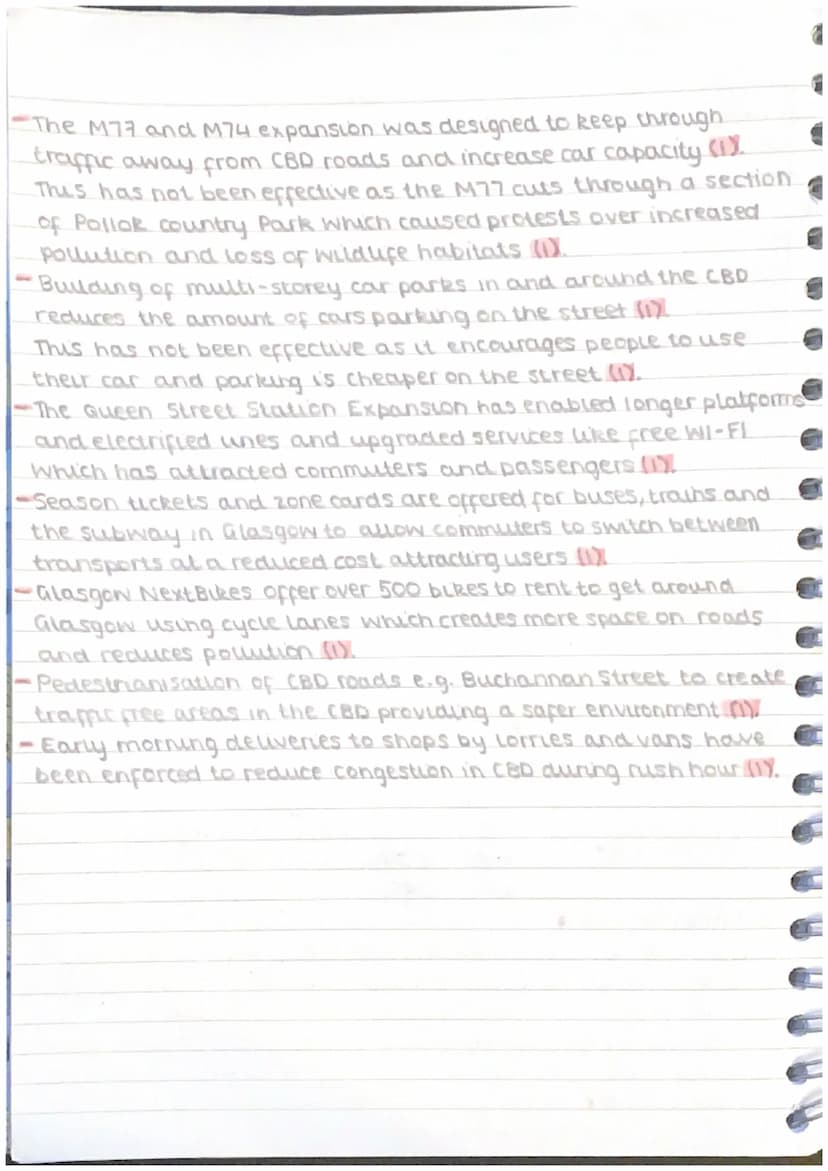 - The M77 and M74 expansion was designed to keep through
traffic away from CBD roads and increase car capacity (1).
This has not been effective as the M77 cuts through a section
of Pollok country Park which caused protests over increased
pollution and loss of wildlife habitats (1).
- Building of multi-storey car parks in and around the CBD
reduces the amount of cars parking on the street (1).
This has not been effective as it encourages people to use
their car and parking is cheaper on the street (1).
- The Queen Street Station Expansion has enabled longer platforms
and electrified lines and upgraded services like free WI-FI
which has attracted commuters and passengers (1).
- Season tickets and zone cards are offered for buses, trains and
the subway in Glasgow to allow commuters to switch between
transports at a reduced cost attracting users (1).
- Glasgow NextBikes offer over 500 bikes to rent to get around
Glasgow using cycle lanes which creates more space on roads
and reduces pollution (1).
- Pedestrianisation of CBD roads e.g. Buchannan Street to create
traffic free areas in the CBD providing a safer environment (1).
- Early morning deliveries to shops by lorries and vans have
been enforced to reduce congestion in CBD during rush hour (1).